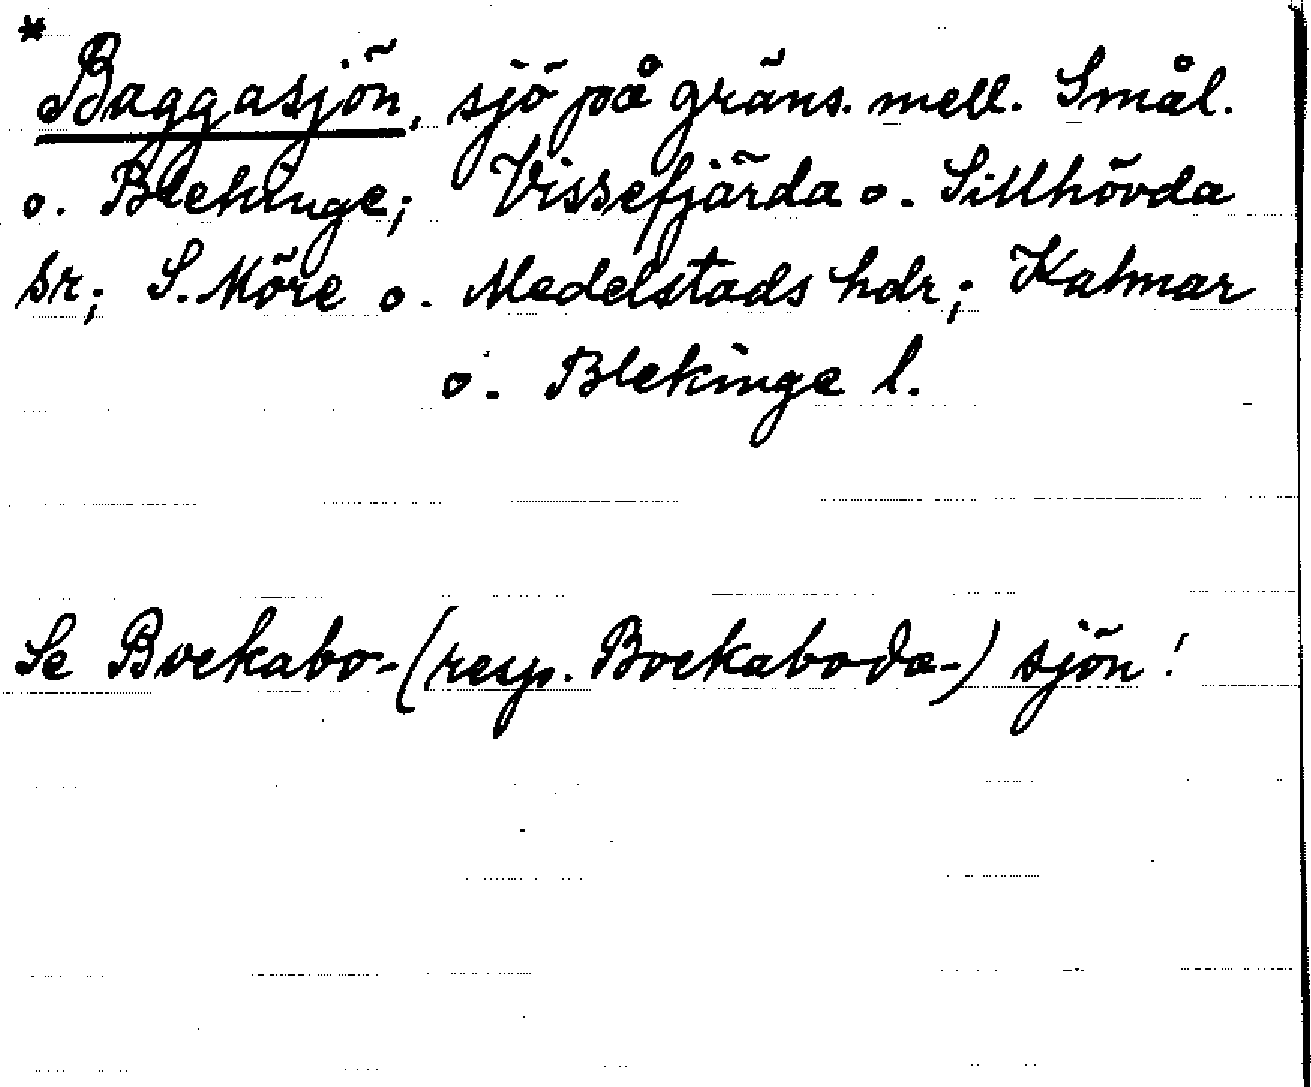 * Baggasjön, sjö på gräns. mell. Smål.
o. Blekinge; Vissefjärda o. Sillhövda
sr; S. Möre o. Medelstads hdr; Kalmar
o. Blekinge l.
Se Bockabo- (resp. Bockaboda-) sjön!